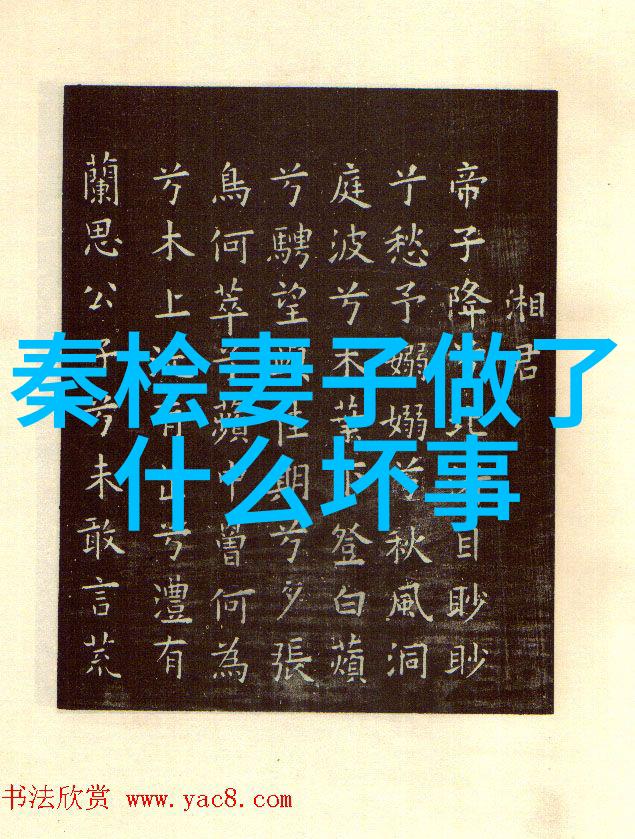 湘君
帝子降兮目眇眇
兮愁予嫋嫋兮秋風洞
庭波兮木葉登白蘋
兮騁望佳期兮夕張
鳥何萃兮蘋中罾何為
兮木上有兮澧有
蘭思公子兮未敢言荒
秦桧妻子做了
什么坏事
书法欣赏 www.yac8.com